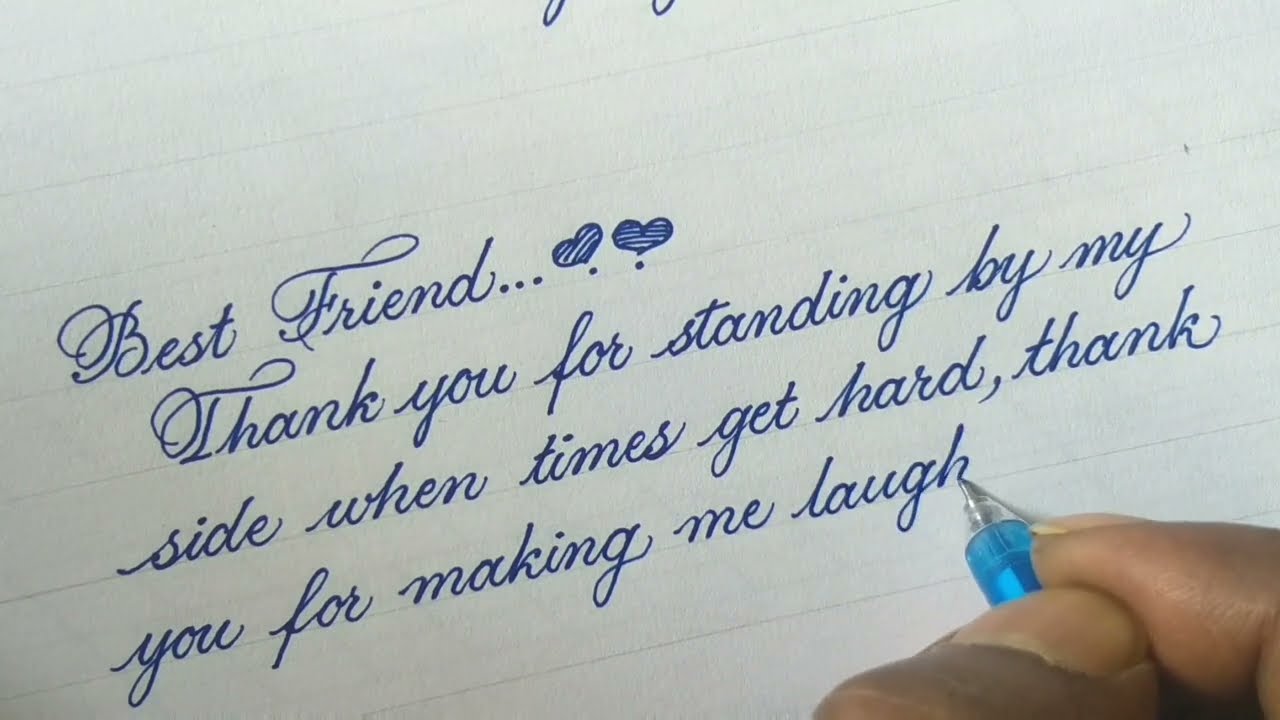 Best Friend...
Thank you for standing by my
side when times get hard, thank
you for making me laugh